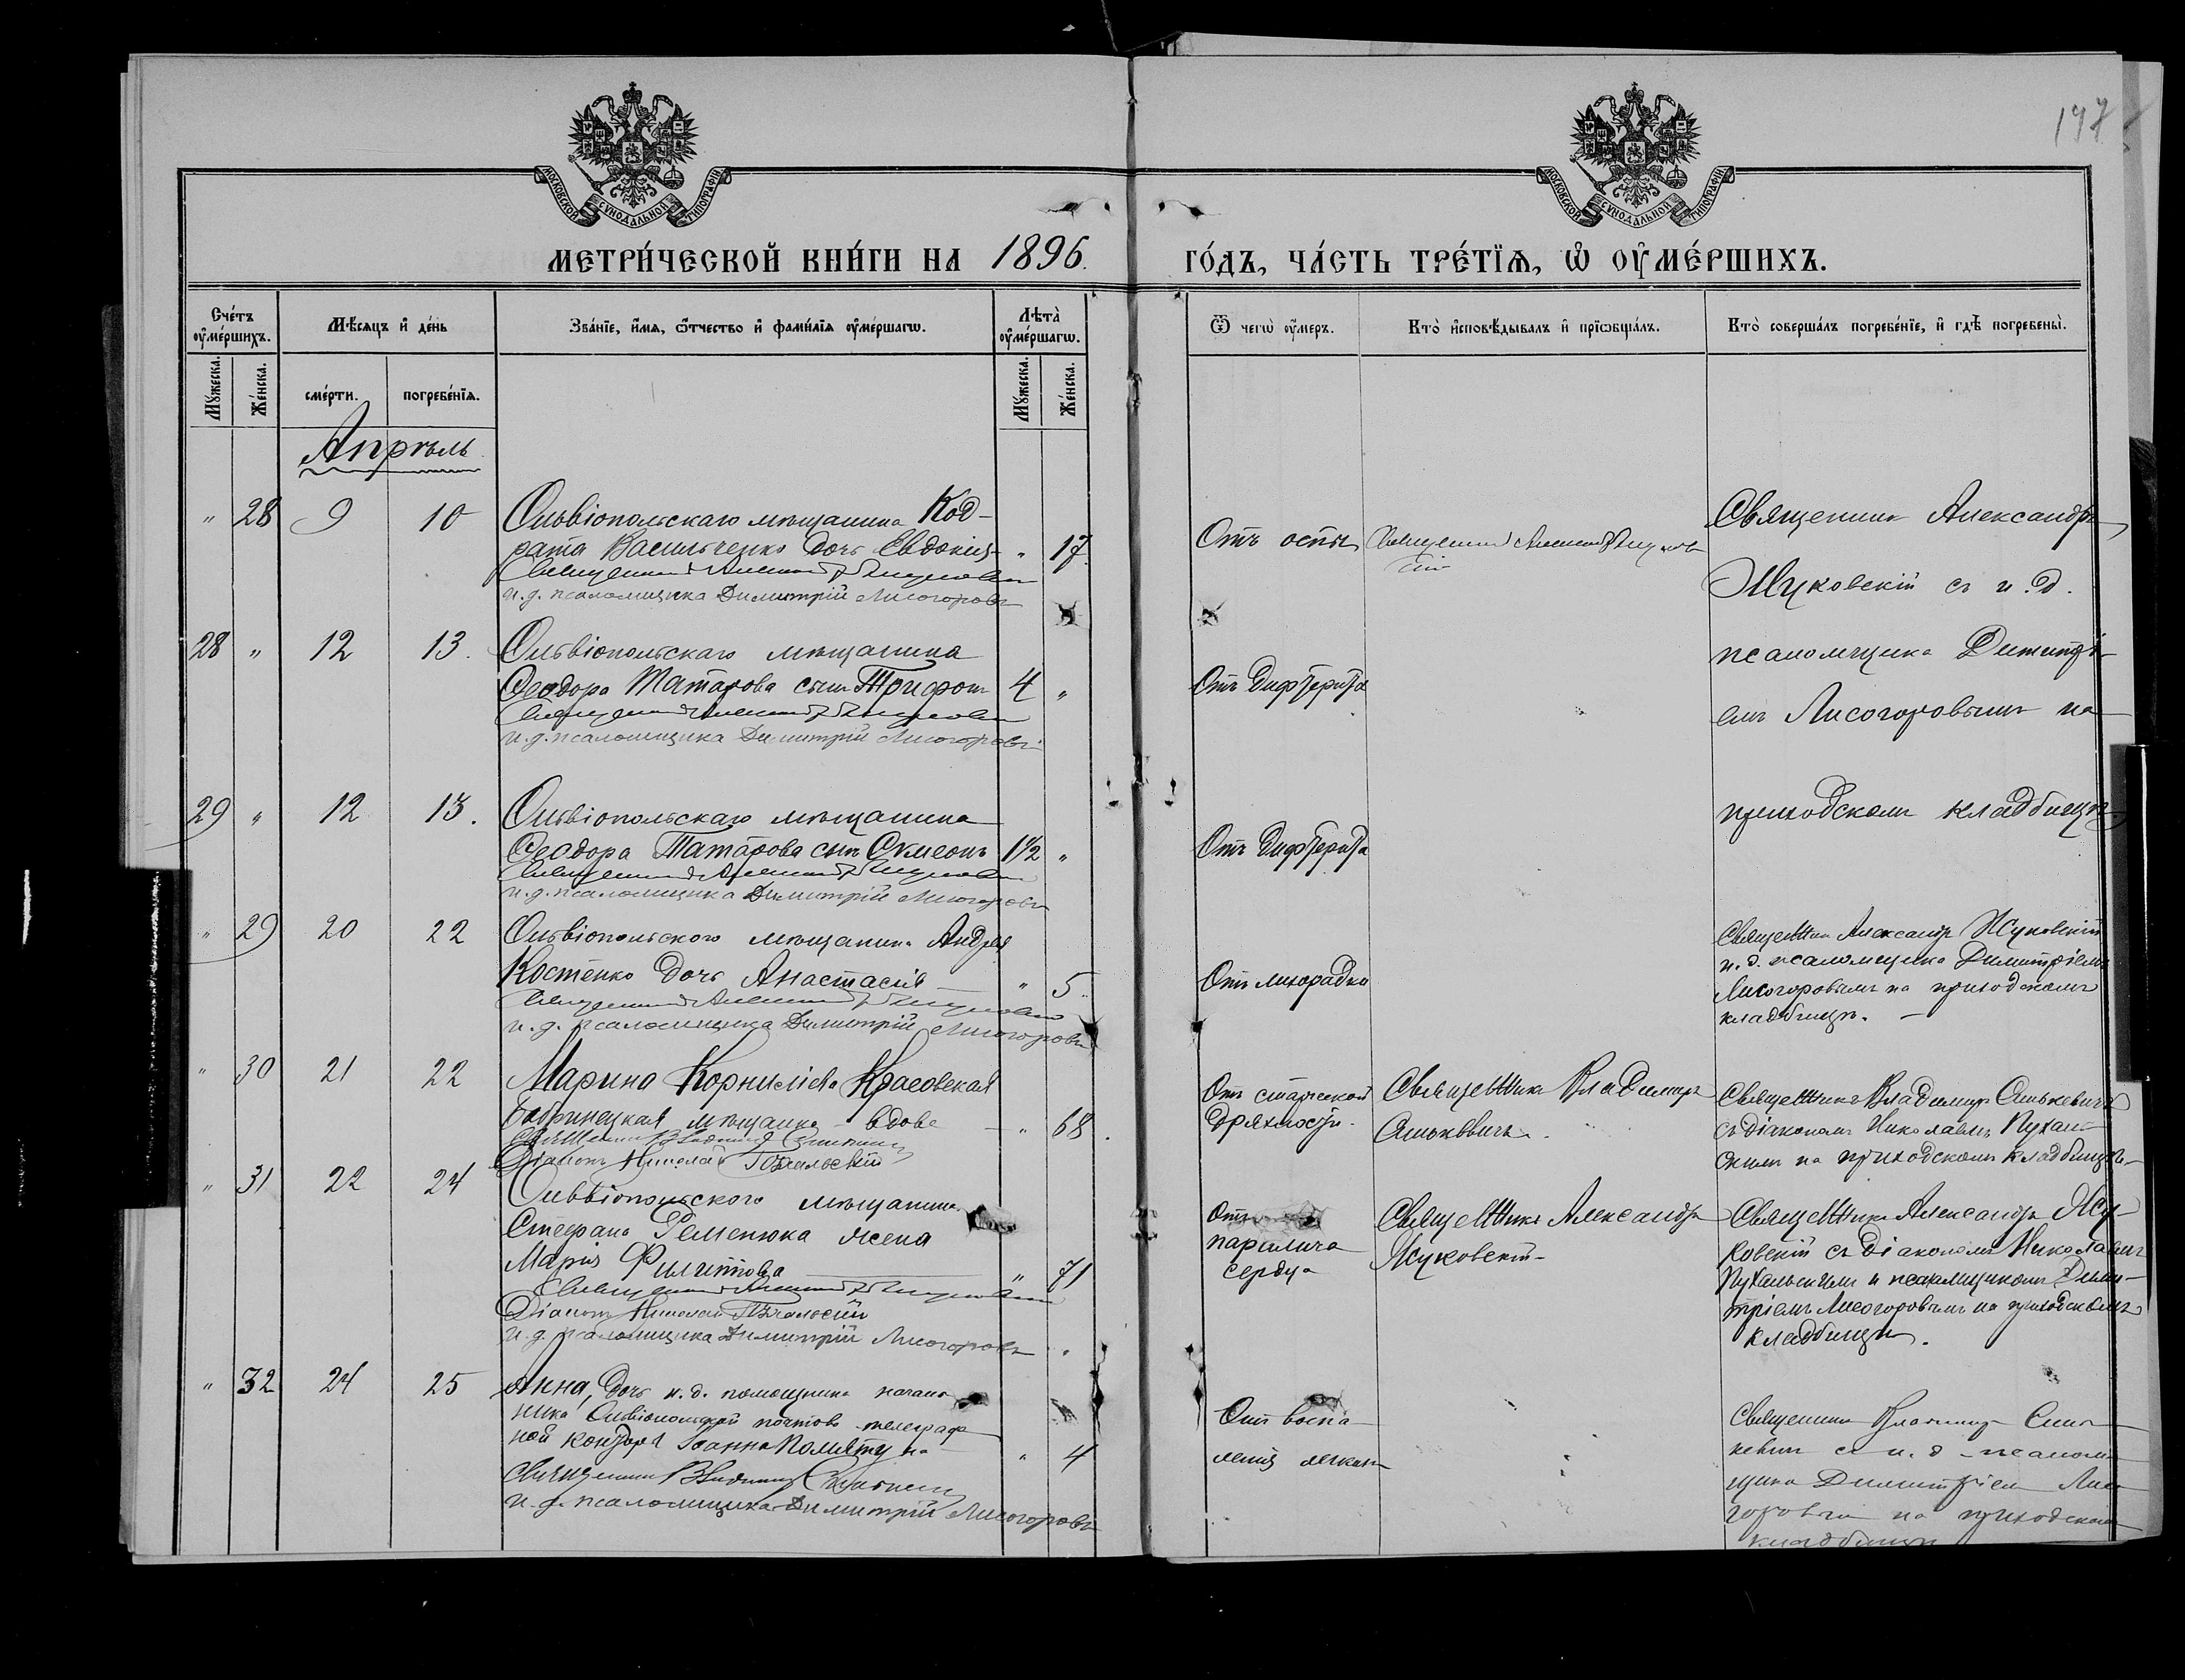 147
МОСКОВСКОЙ СѴНОДАЛЬНОЙ ТИПОГРАФІИ
МОСКОВСКОЙ СѴНОДАЛЬНОЙ ТИПОГРАФІИ
МЕТРИ́ЧЕСКОЙ КНИ́ГИ НА 1896.
ГО́ДЪ, ЧА́СТЬ ТРЕ́ТЇѦ, Ѡ҆ ОУ҆МЕ́РШИХЪ.
Сче́тъ оу҆ме́ршихъ.
Мѣ́сяцъ и҆ де́нь
Зва́нїе, и҆́мѧ, ѻ҆́тчество и҆ фами́лїѧ оу҆ме́ршагѡ.
Лѣ́та оу҆ме́ршагѡ.
Ѿ чегѡ̀ оу҆́меръ.
Кто̀ и҆сповѣ́дывалъ и҆ прїѡбща́лъ.
Кто̀ соверша́лъ погребе́нїе, и҆ гдѣ̀ погребены̀.
Мꙋ́жеска.
Же́нска.
сме́рти.
погребе́нїѧ.
Мꙋ́жеска.
Же́нска.
Апрѣль
" 28 9 10 Ольвіопольскаго мѣщанина Код-
рата Васильченко дочь Евдокія " 17.
Священникъ Александръ Жуковскій
и.д. псаломщика Димитрій Лисогоровъ
Отъ оспы
Священникъ Александръ Жуковскій
Священникъ Александръ
Жуковскій съ и.д.
псаломщика Димитрі-
емъ Лисогоровымъ на
приходскомъ кладбищѣ.
28 " 12 13. Ольвіопольскаго мѣщанина
Ѳеодора Татарова сынъ Трифонъ 4 "
Священникъ Александръ Жуковскій
и.д. псаломщика Димитрій Лисогоровъ
Отъ дифтерита
29 " 12 13. Ольвіопольскаго мѣщанина
Ѳеодора Татарова сынъ Сѵмеонъ 1 1/2 "
Священникъ Александръ Жуковскій
и.д. псаломщика Димитрій Лисогоровъ
Отъ дифтерита
" 29 20 22 Ольвіопольского мѣщанина Андрея
Костенко дочь Анастасія " 5.
Священникъ Александръ Жуковскій
и.д. псаломщика Димитрій Лисогоровъ
Отъ лихорадки
Священникъ Александръ Жуковскій
и.д. псаломщика Димитріемъ
Лисогоровымъ на приходскомъ
кладбищѣ.
" 30 21 22 Марина Корниліева Красовская
Бобринецкая мѣщанка - вдова - " 68.
Священникъ Владимиръ
Діаконъ Николай Пухальскій
Отъ старческой
дряхлости.
Священникъ Владимиръ
Священникъ Владимиръ
съ діакономъ Николаемъ Пухаль-
скимъ на приходскомъ кладбищѣ.
" 31 22 24 Ольвіопольского мѣщанина
Стефана Ременюка жена
Марія Филиппова " 71
Священникъ Александръ Жуковскій
Діаконъ Николай Пухальскій
и.д. псаломщика Димитрій Лисогоровъ
Отъ
паралича
сердца
Священникъ Александръ
Жуковскій
Священникъ Александръ Жу-
ковскій съ діакономъ Николаемъ
Пухальскимъ и псаломщикомъ Дими-
тріемъ Лисогоровымъ на приходскомъ
кладбищѣ.
" 32 24 25 Анна, дочь и.д. помощника началь-
ника Ольвіопольской почтово-телеграф-
ной конторы Іоанна " 4
Священникъ Владимиръ
и.д. псаломщика Димитрій Лисогоровъ
Отъ воспа-
ленія легкихъ
Священникъ Владимиръ
съ и.д. псалом-
щика Димитріемъ Лисо-
горовымъ на приходскомъ
кладбищѣ